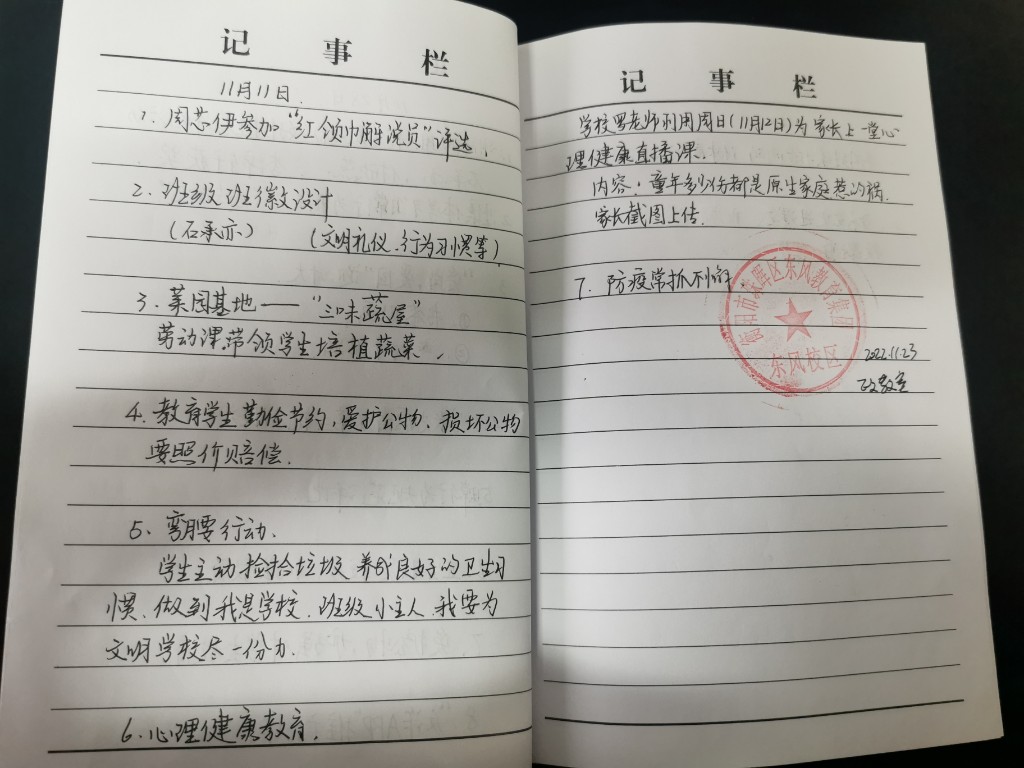 记事栏
11月11日.
1. 周芯伊参加“红领巾解说员”评选.
2. 班级班徽文设计
(石承亦) (文明礼仪.行为习惯等)
3. 菜园基地——“三味蔬屋”
劳动课,带领学生培植蔬菜.
4. 教育学生勤俭节约,爱护公物、损坏公物
要照价赔偿.
5. 弯腰行动.
学生主动捡拾垃圾 养成良好的卫生习
惯.做到我是学校.班级小主人 我要为
文明学校尽一份力.
6. 心理健康教育.
记事栏
学校罗老师利用周日(11月12日)为家长上一堂心
理健康直播课.
内容:童年多少伤都是原生家庭惹的祸.
家长截图上传.
7. 防疫常抓不懈.
衡阳市蒸湘区东风教育集团
东风校区
2022.11.23
政教室